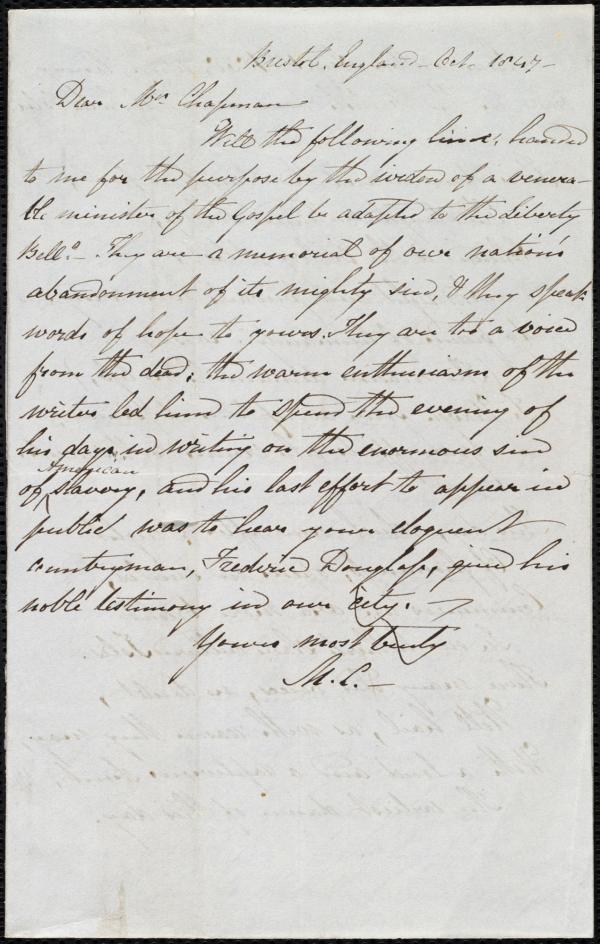 Bristol, England - Oct. 1847 -
Dear Mrs Chapman
Will the following lines, handed
to me for the purpose by the widow of a venera-
ble minister of the Gospel be adapted to the Liberty
Bell? - They are a memorial of our nation's
abandonment of its mighty sin, & they speak
words of hope to yours. They are too a voice
from the dead; the warm enthusiasm of the
writer led him to spend the evening of
his days in writing on the enormous sin
American
of slavery, and his last effort to appear in
public was to hear your eloquent
countryman, Frederic Douglass, give his
noble testimony in our city. -
Yours most truly
M. C. -